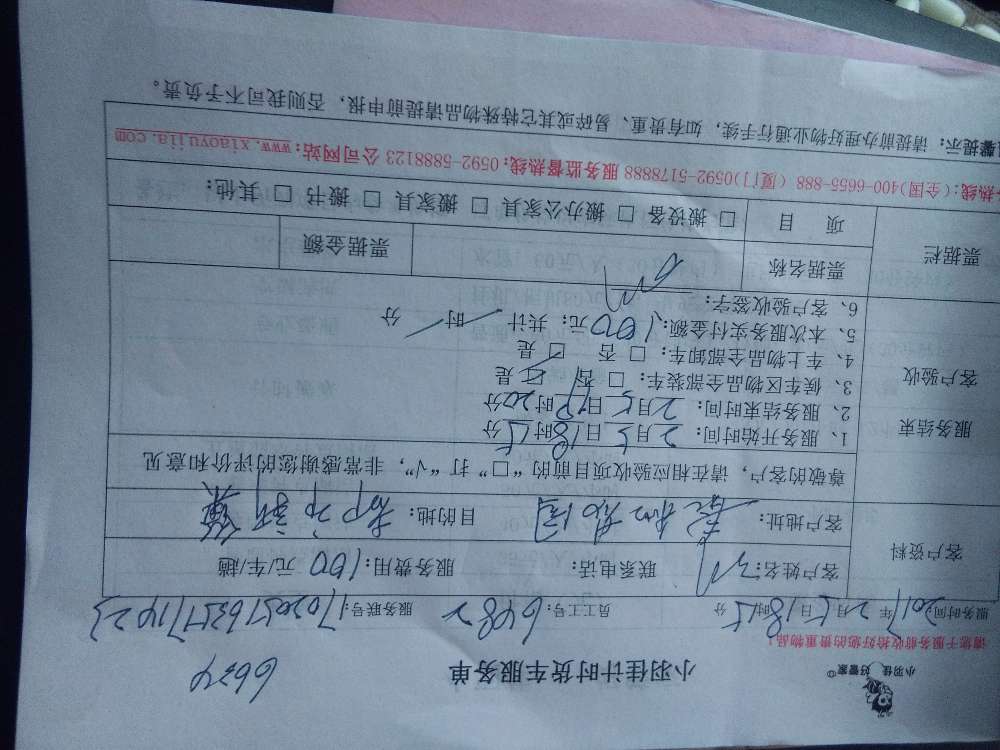 小羽佳 好管家
小羽佳计时货车服务单
6634
请您于服务前收拾好您的贵重物品！
服务时间：2017年2月5日18时15分 员工工号：6482 服务联号：
客户资料
客户姓名： 联系电话： 服务费用：100元/车/趟
客户地址： 目的地：
尊敬的客户，请在相应验收项目前的“□”打“√”，非常感谢您的评价和意见
服务结束
客户验收
1、服务开始时间：2月5日18时15分
2、服务结束时间：2月5日19时20分
3、候车区物品全部装车：□否 □是
4、车上物品全部卸车：□否 □是
5、本次服务实付金额：100元；共计 时 分
6、客户验收签字：
票据栏
票据名称 票据金额
项 目 □搬设备 □搬办公家具 □搬家具 □搬书 □其他：
热线：(全国)400-6655-888 (厦门)0592-5178888 服务监督热线：0592-5888123 公司网站：www.xiaoyujia.com
馨提示：请提前办理好物业通行手续，如有贵重、易碎或其它特殊物品请提前申报，否则我司不予负责。